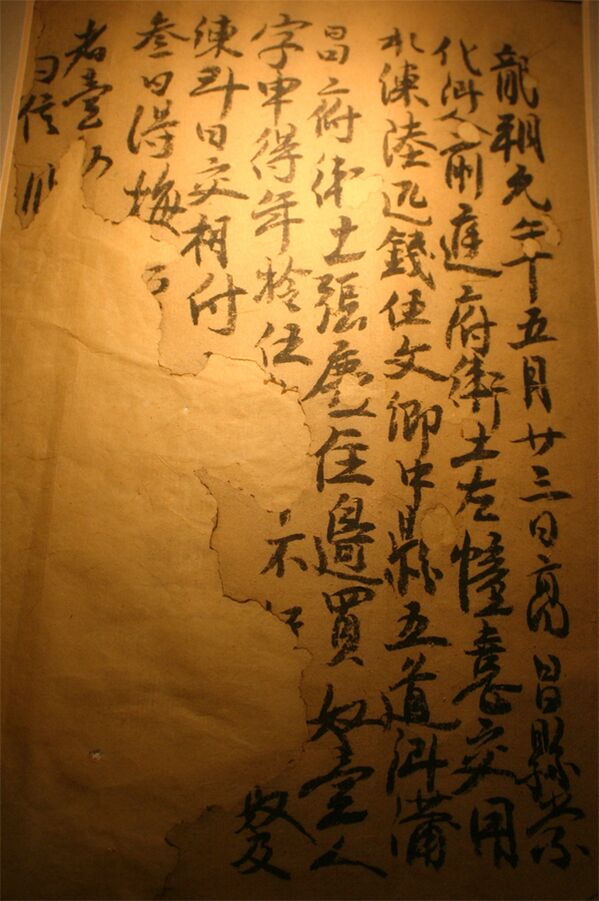 龍朔元年五月廿三日高昌縣崇
化鄉人前庭府衛士左憧憙交用
水練陸疋錢伍文柳中縣五道鄉蒲
昌府衛士張慶住邊買奴壹人
字申得年拾伍 不 奴及
練斗日交相付
叁日得悔
者壹